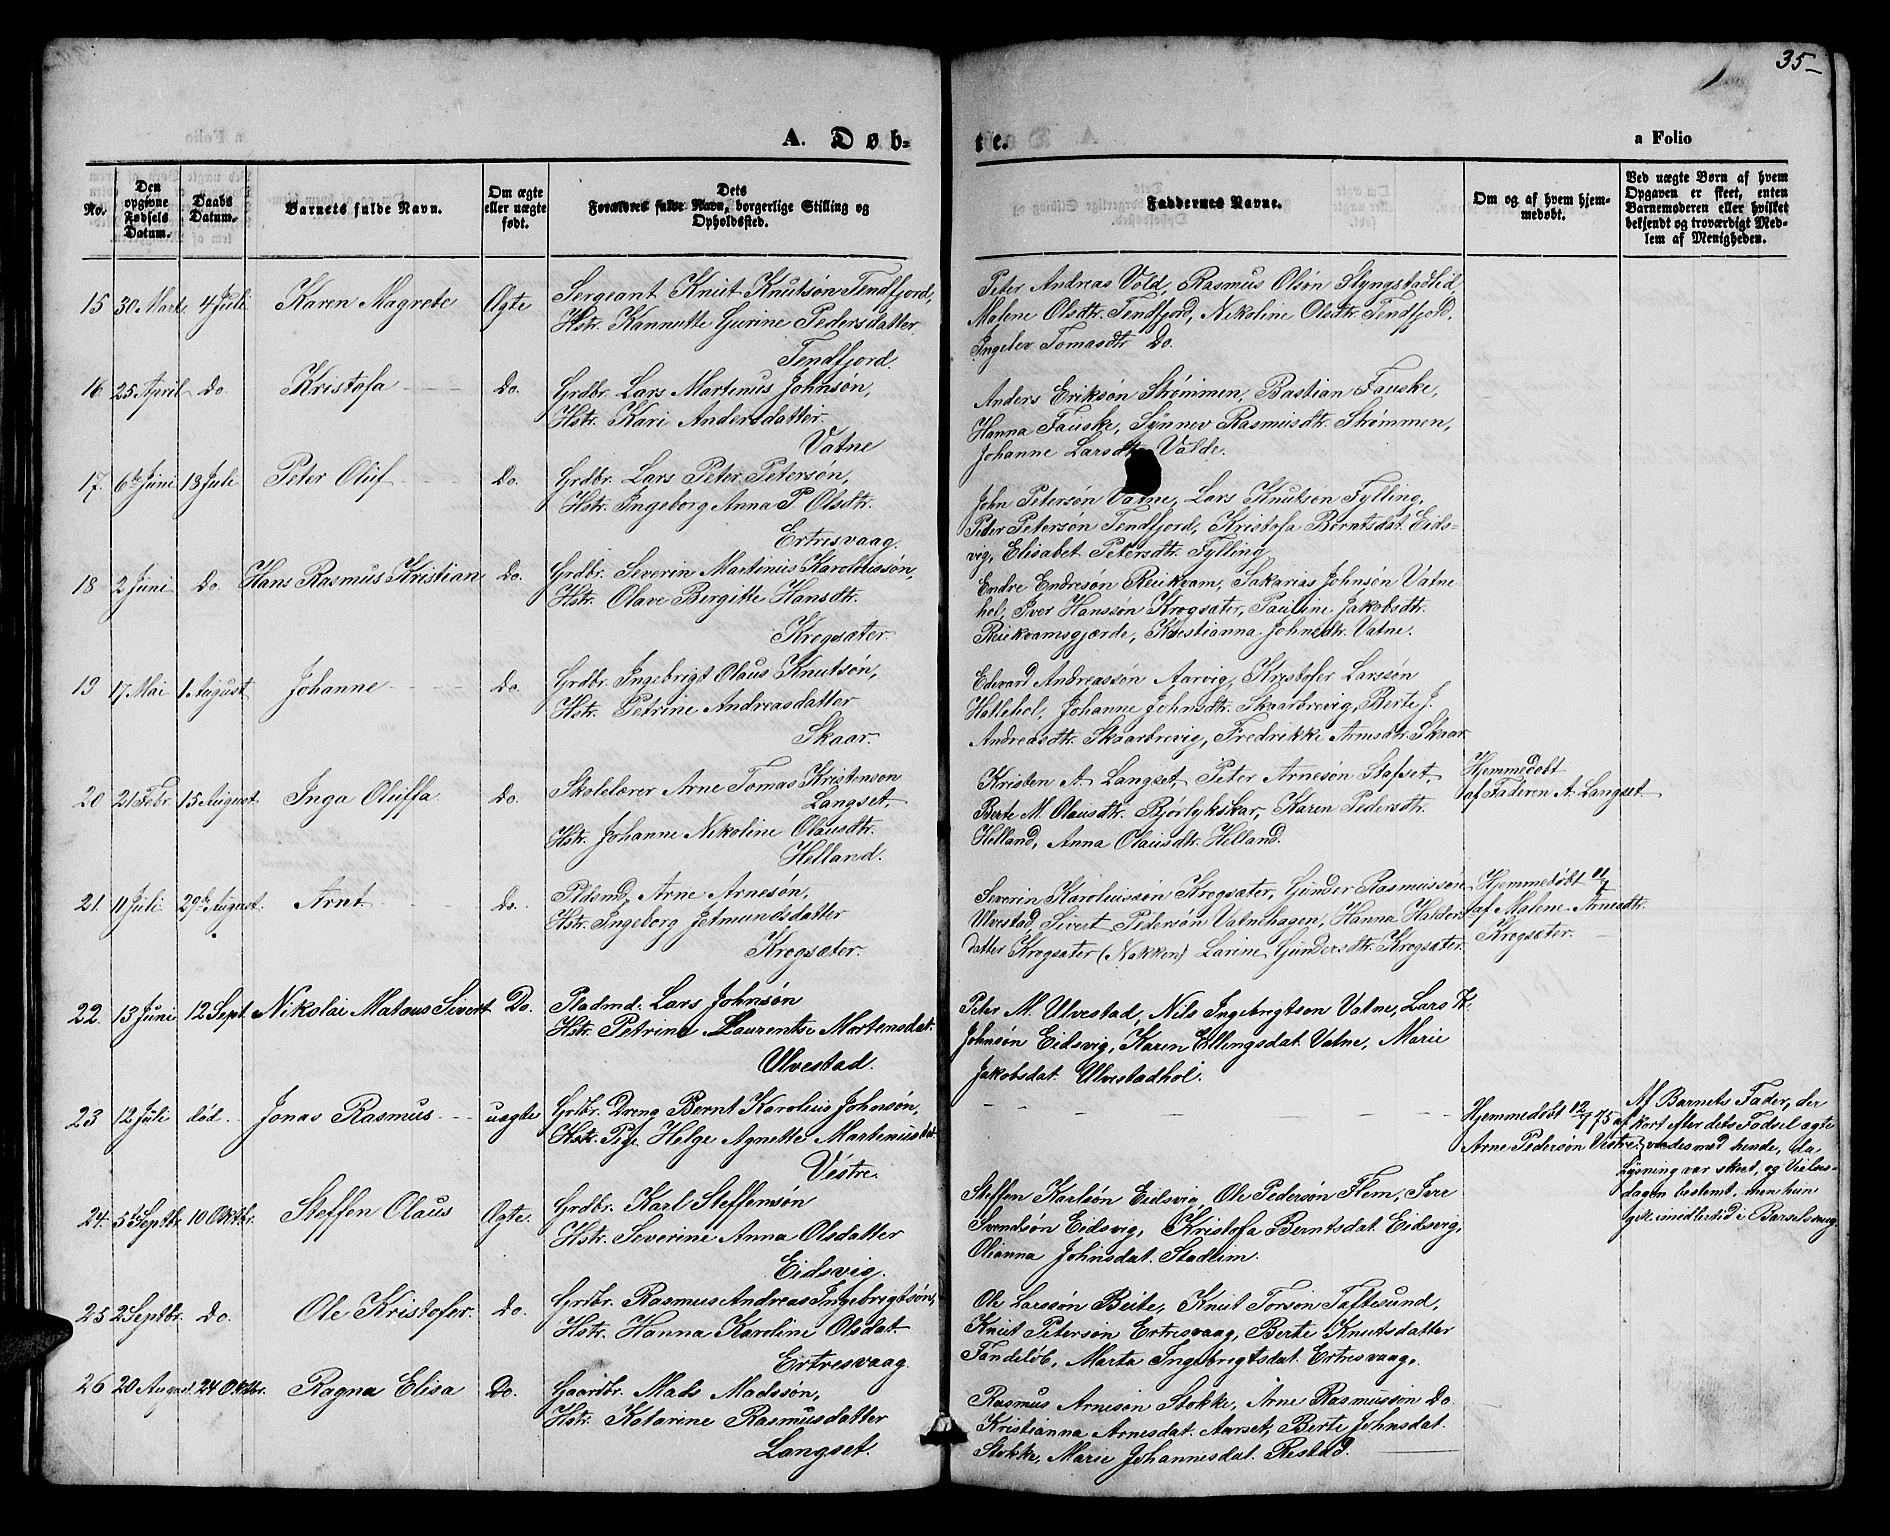 35-
A. Døb-
te.
a Folio
No.
Den opgivne Fødsels Datum.
Daabs Datum.
Barnets fulde Navn.
Om ægte eller uægte født.
Dets Forældres fulde Navn, borgerlige Stilling og Opholdssted.
Faddernes Navne.
Om og af hvem hjemmedøbt.
Ved uægte Børn af hvem Opgaven er skeet, enten Barnemoderen eller hvilket bekjendt og troværdigt Medlem af Menigheden.
15 30 Marts 4 Juli Karen Magrete Ægte Sergeant Knut Knutsøn Tendfjord,
Hstr. Kannutte Gurine Pedersdatter
Tendfjord.
Peter Andreas Vold, Rasmus Olsøn Slyngstadlid,
Malene Olsdtr. Tendfjord, Nikoline Olsdtr. Tendfjord,
Ingelev Tomasdtr Do.
16. 25 April Do. Kristofa Do. Grdbr. Lars Martinus Johnsøn,
Hstr. Kari Andersdatter.
Vatne
Anders Eriksøn Strømmen, Bastian Fauske,
Hanna Fauske, Synnev Rasmusdtr. Strømmen,
Johanne Larsdtr. Valde.
17. 6te Juni 18 Juli Peter Oluf Do. Grdbr. Lars Peter Petersøn,
Hstr. Ingeborg Anna P. Olsdtr.
Ertresvaag.
John Petersøn Vatne, Lars Knutsøn Fylling,
Peder Petersøn Tendfjord, Kristofa Berntsdat. Eids-
vig, Elisabet Petersdtr. Fylling
18 2 Juni Do. Hans Rasmus Kristian Do. Grdbr. Severin Martinus Karoliussøn,
Hstr. Olave Bergitte Hansdtr.
Krogsæter.
Endre Endresøn Reiekvam, Sakarias Johnsøn Vatne
hol, Iver Hanssøn Krogsæter, Pauline Jakobsdtr.
Reiekvamsgjærde, Kristianna Johnsdtr. Vatne.
19 17 Mai 1 August Johanne Do. Grdbr. Ingebrigt Olaus Knutsøn,
Hstr. Petrine Andreasdatter
Skaar.
Edvard Andreassøn Aarvig, Kristofer Larssøn
Hatlehol, Johanne Johnsdtr. Skaarbrevig, Berte J.
Andreasdtr. Skaarbrevig, Fredrikke Arnsdtr. Skaar
20 21 Febr. 15 August Inga Oluffa Do. Skolelærer Arne Tomas Kristenson
Langset,
Hstr. Johanne Nikoline Olausdtr.
Helland.
Kristen A. Langset, Peter Arnesøn Stafset,
Berte M. Olausdtr. Bjørlykskar, Karen Pedersdtr.
Helland, Anna Olausdtr. Helland.
Hjemmedøbt
af Faderen A. Langset.
21. 11 Juli 29de August. Arnt Do. Pldsmd. Arne Arnesøn,
Hstr. Ingeborg Jetmundsdatter
Krogsæter.
Severin Karoliussøn Krogsæter, Gunder Rasmussøn
Ulvestad, Sivert Pedersøn Vatnehagen, Hanna Haldors
datter Krogsæter (Nakken) Larine Gundersdtr. Krogsæter.
Hjemmedøbt 11/7
af Malene Arnesdtr.
Krogsæter.
22. 13 Juni 12 Sept. Nikolai Mataus Sivert Do. Pladmd. Lars Johnsøn
Hstr. Petrine Laurentse Martensdat.
Ulvestad.
Peter M. Ulvestad, Nils Ingebregtson Vatne, Lars K.
Johnsøn Eidsvig, Karen Ellingsdat. Vatne, Marie
Jakobsdat. Ulvestadhol.
23 12 Juli død. Jonas Rasmus uægte Grdbr. Dreng Bernt Karolius Johnsøn,
Hstr. Pige Helge Agnette Martinusdat.
Vestre.
Hjemmedøbt 12/7 75 af
Arne Pedersøn Vestre
Af Barnets Fader, der
kort efter dets Fødsel ægte
viedes med hende, da
Lysning var skeet, og Vielses-
dagen bestemt, men hun
gik imidlertid i Barselseng
24. 5te Septbr. 10 Oktbr. Steffen Olaus Ægte. Grdbr. Karl Steffensøn
Hstr. Severine Anna Olsdatter
Eidsvig.
Steffen Karlsøn Eidsvig, Ole Pedersøn Flem, Iver
Svendsøn Eidsvig, Kristofa Berntsdat. Eidsvig,
Olianna Johnsdat. Stadlim.
25 2 Septbr. Do. Ole Kristofer. Do. Grdbr. Rasmus Andreas Ingebregtsøn,
Hstr. Hanna Karoline Olsdat.
Ertresvaag
Ole Larssøn Beite, Knut Torson Taftesund,
Knut Petersøn Ertresvaag, Berte Knutsdatter
Tandeløb, Marta Ingebregtsdat. Ertresvaag.
26 20 August 24 Oktbr. Ragna Elisa Do. Gaardbr. Mads Madssøn,
Hstr. Katarine Rasmusdatter
Langset.
Rasmus Arnesøn Stokke, Arne Rasmussøn Do
Kristianna Arnesdat. Aarset, Berte Johnsdat.
Stokke, Marie Johannesdat. Restad.